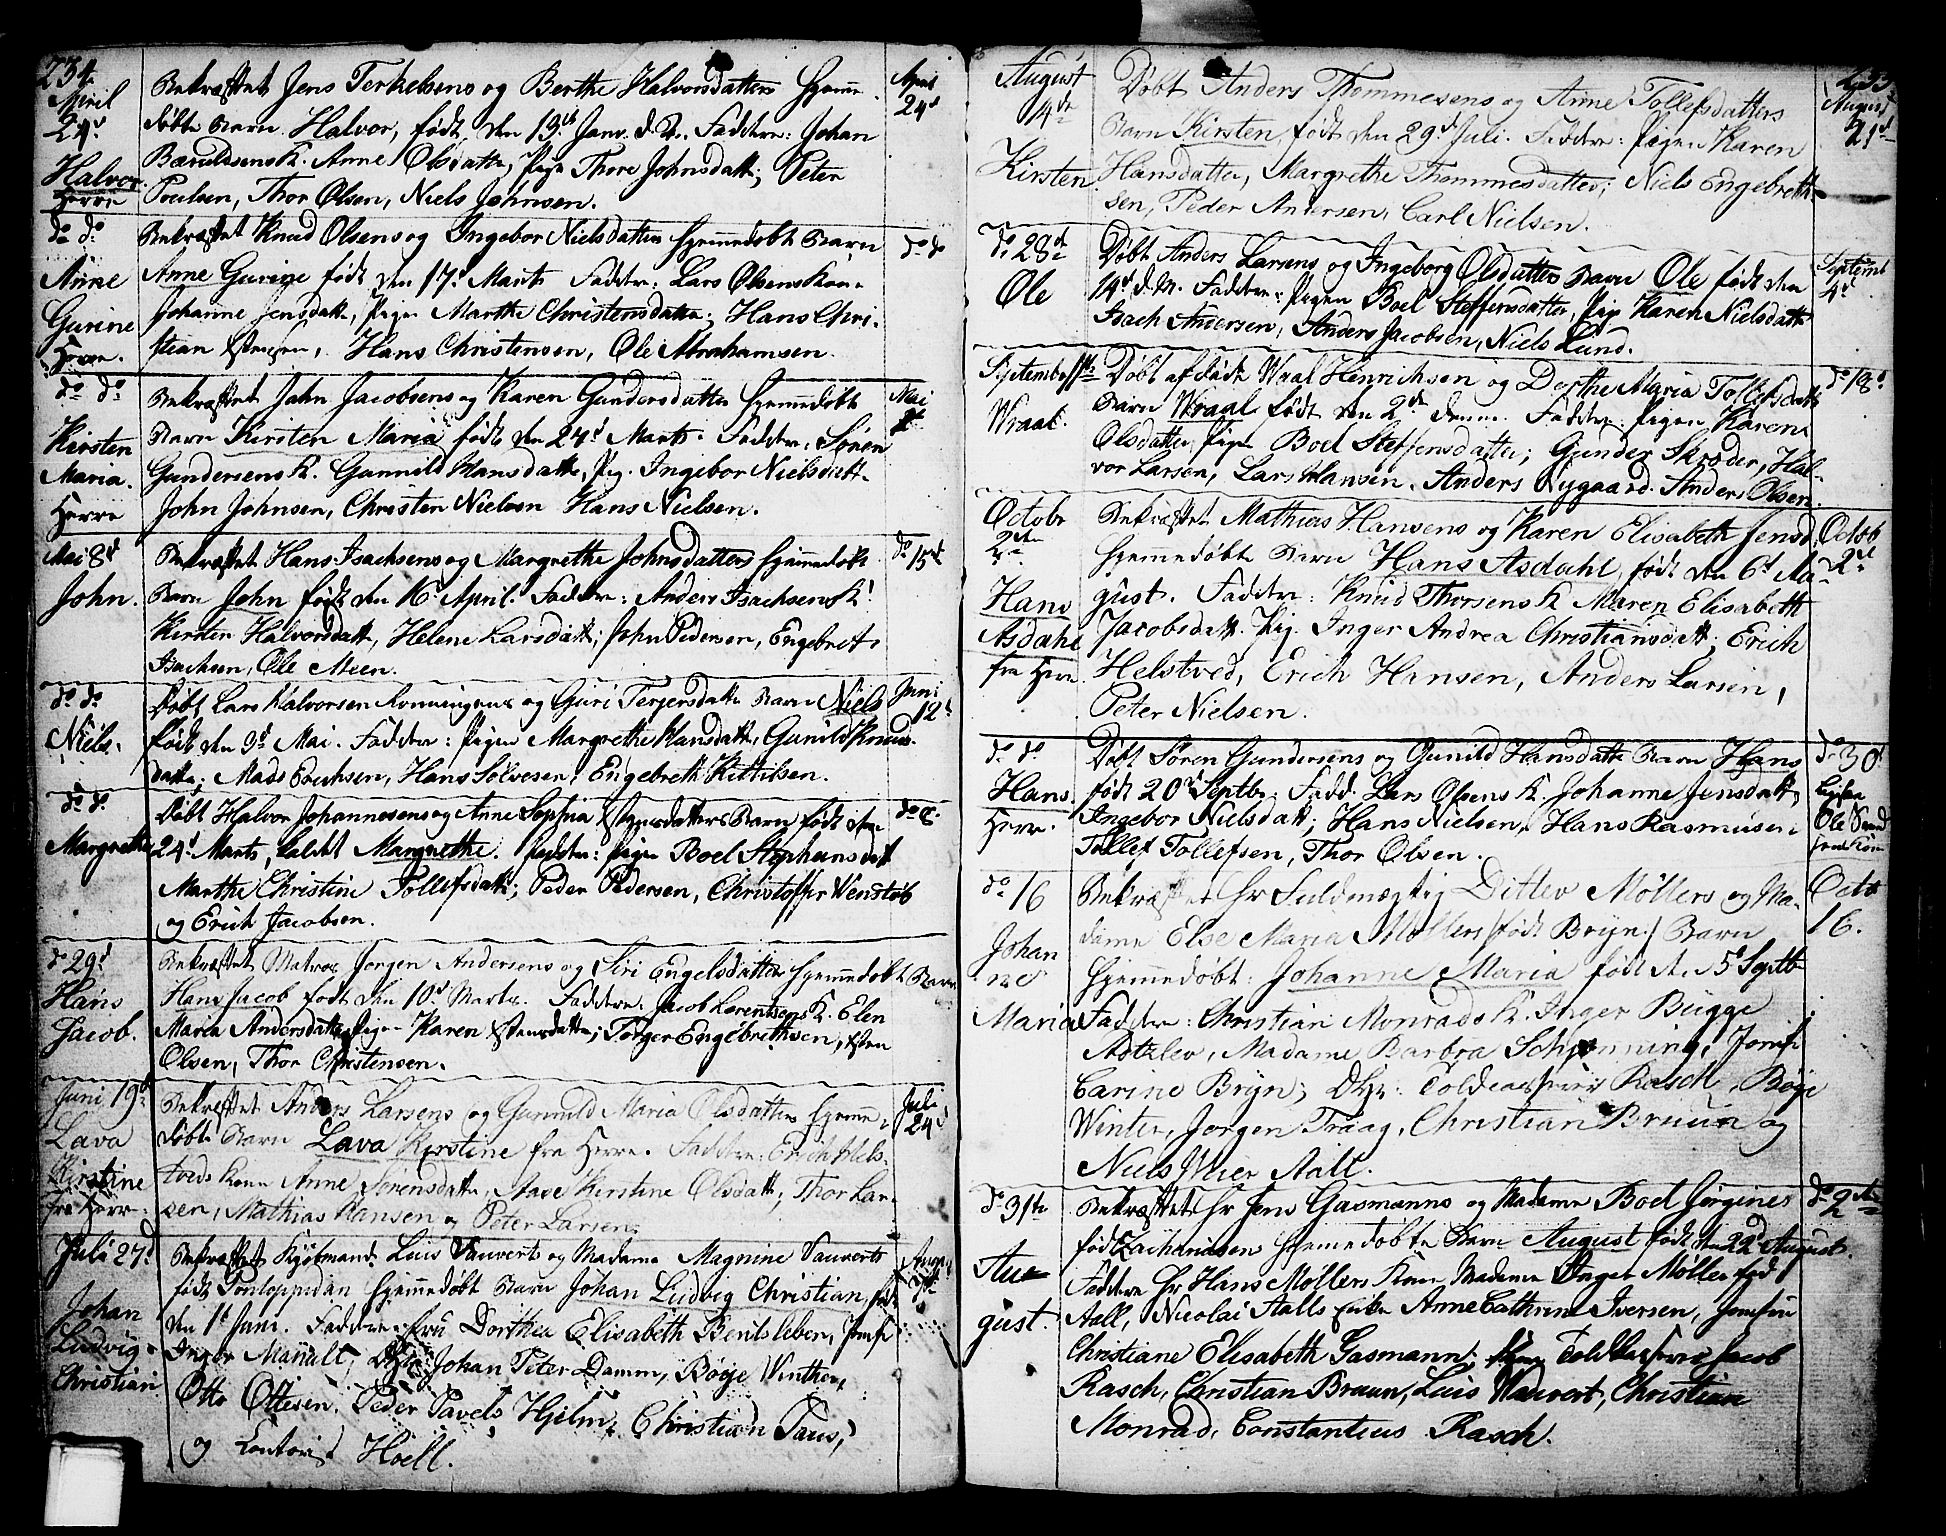 234.
April
24d
Halvor.
Herre
Bekræftet Jens Terkelsens og Berthe Halvorsdatters Hjemme-
døbte Barn Halvor, født den 13d Janv. d. A. Faddere: Johan
K. Anne Olsdatter, Pige Thore Johnsdatt; Peter
Poulsen, Thor Olsen, Niels Johnsen.
April
24d
do do
Anne
Gurine
Herre.
Bekræftet Knud Olsens og Ingebor Nielsdatters hjemmedøbt Barn
Anne Gurine født den 17d Marts Faddere: Lars Olsens Kone
Johanne Jensdatt, Pigen Marthe Christensdatter; Hans Chri-
stian Hans Christensen, Ole Abrahamsen.
do do
do do
Kirsten
Maria.
Herre
Bekræftet John Jacobsens og Karen Gundersdatters hjemmedøbt
Barn Kirsten Maria født den 24d Marts. Faddere: Søren
Gundersens K. Gunnild Hansdatt, Pig. Ingebor Nielsdatt.
John Johnsen, Christen Nielsen Hans Nielsen.
Mai
Mai 8d
John.
Bekræftet Hans Isachsens og Margrethe Johnsdatters hjemmedøbt
Barn John født den 16d April. Faddere: Anders Isachsens K:
Kirsten Halvorsdatt, Helene Larsdatt; John Pedersen, Engebret
Isachsen, Ole Meen.
do 15d
do do
Niels.
Døbt Lars Halvorsen Ronningens og Guri Terjersdatt Barn Niels
født den 3d Mai. Faddere: Pigen Margrethe Hansdatt, Gunild Knuds
datter; Mads Erichsen, Hans Solvesen, Engebreth Kittilsen.
Juni
12d
do do
Margrethe
Døbt Halvor Johannesens og Anne Sophia Barn født den
24d Marts, kaldet Margrethe. Faddere: Pigen Boel Stephensdatt
Marthe Christine Tollefsdatt; Peder Pedersen, Christoffer Wenstøb
og Erich Jacobsen.
do
do 29d
Hans
Jacob.
Bekræftet Matros Jorgen Andersens og Siri Engelsdatters hjemmedøbt Barn
Hans Jacob født den 10d Marts. Faddere: Jacob Lorentsens K. Elen
Maria Andersdatter Pigen Karen Torger Engebrethsen,
Olsen, Thor Christensen.
Juni 19d
Lava
Kirstine
fra Herre.
Bekræftet Anders Larsens og Gunnild Maria Olsdatters hjemme-
døbte Barn Lava Kirstine fra Herre. Faddere: Erich Hels-
tveds Kone Anne Sørensdatter, Aase Kirstine Olsdatt; Thor Lar-
sen, Mathias Hansen og Peter Larsen.
Juli
24d
Juli 27d
Johan
Ludvig
Christian
Bekræftet Kjøbmand Luis Vauverts og Madame Magnine Vauverts
født Pontoppidan hjemmedøbt Barn Johan Ludvig Christian, født
den 1d Juni. Faddere: Fru Dorthea Elisabeth Bentsleben, Jomfr
Inger Johan Peter Damm, Bøye Winther,
Otto Ottesen, Peder Pavels Hjelm, Christian Paus,
og Hoell.
August
14de
Kirsten
Døbt Anders Thommesens og Anne Tollefsdatters
Barn Kirsten, født den 29d Juli. Faddere: Pigen Karen
Hansdatter, Margrethe Thommesdatter; Niels Engebreth-
sen, Peder Andersen, Carl Nielsen.
235.
August
21d
do 28d
Ole
Døbt Anders Larsens og Ingeborg Olsdatters Barn Ole født den
14d d. M. Faddere: Pigen Boel Steffensdatter, Pig Karen Nielsdatt
Isach Andersen, Anders Jacobsen, Niels Lund.
Septemb
4d
September
Wraal.
Døbt Wraal Henrichsen og Dorthe Maria Tollefsdatt
Barn Wraal født den 2d Faddere: Pigen Karen
Olsdatter, Pigen Boel Steffensdatter; Gunder Skrøder, Hal-
vor Larsen, Lars Hansen. Anders Nygaard. Anders Olsen.
do 18d
Octobr
2den
Hans
Asdahl
fra Herre
Bekræftet Mathias Hansens og Karen Elisabeth Jensd.
Hjemmedøbte Barn Hans Asdahl, født den 6d Au-
gust. Faddere: Knud Thorsens K. Maren Elisabeth
Jacobsdatt. Pig. Inger Andrea Christiansdatt; Erich
Helstved, Erich Hansen, Anders Larsen,
Peter Nielsen.
Octob
2d
do do
Hans.
Herre.
Døbt Søren Gundersens og Gunild Hansdatts Barn Hans
født 20d Septbr. Fadd. Lars Olsens K. Johanne Jensdatt,
Ingebor Nielsdatt; Hans Nielsen, Hans Rasmusen
Tollef Tollefsen, Thor Olsen.
do 30d
Ole
do 16
Johan
ne
Maria
Bekræftet Hr Fuldmægtig Ditlev Møllers og Ma-
dame Else Maria Møllers / født Bryn / Barn
hjemmedøbt: Johanne Maria født d. 5d Septb
Faddere: Christian Monrads K. Inger Bugge
Adzlev, Madame Barbra Schønning, Jomfr
Carine Bryn; Rasch, Bøye
Winter, Jorgen Traag, Christian Bruun og
Niels Aall.
Octb
16.
do 31te
Au-
gust.
Bekræftet Hr Jens Gasmanns og Madame Boel Jørgines
født Zachariasen hjemmedøbte Barn August født den 22d August.
Faddere Hr Hans Møllers Kone Madame Inger Møller fød
Aall, Nicolai Aalls Anne Cathrine Iversen, Jomfru
Christiane Elisabeth Gasmann; Jacob
Rasch, Christian Bruun, Luis Wauvert, Christian
Monrad, Constantius Rasch.
do 2den